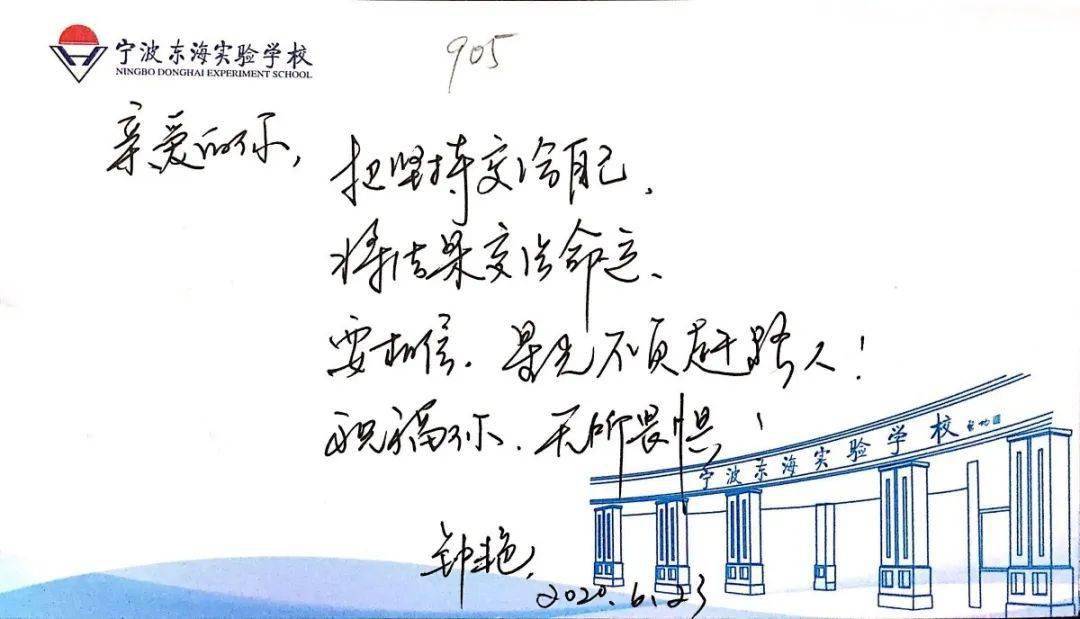 宁波东海实验学校
NINGBO DONGHAI EXPERIMENT SCHOOL
905
亲爱的你,
把坚持交给自己、
将结果交给命运、
要相信.星光不负赶路人!
祝福你.无所畏惧!
宁波东海实验学校
钟艳.
2020.6.23